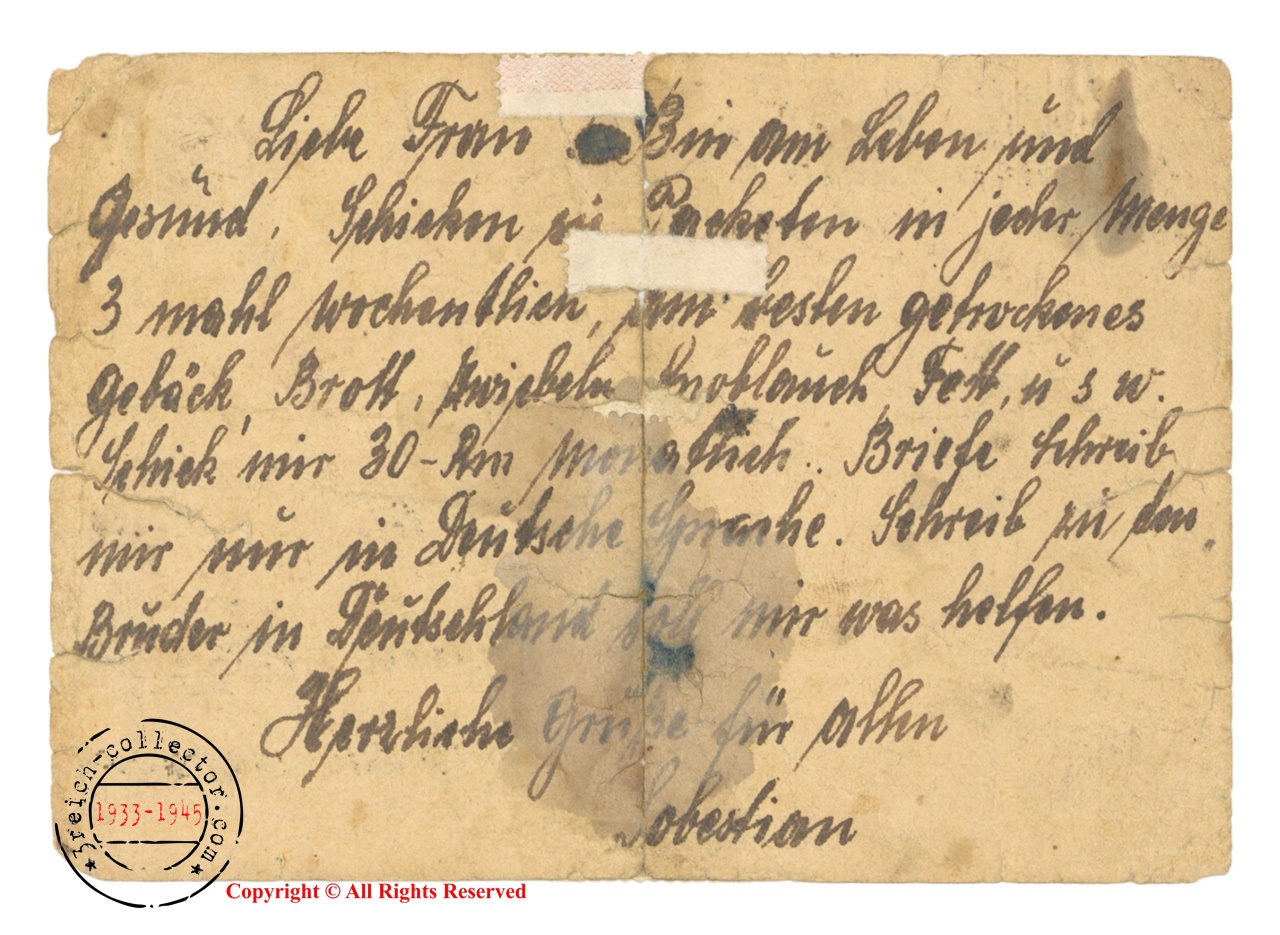 Liebe Frau Bin am Leben und
Gesund. Schicken zu Packeten in jeder Menge
3 mahl wochentlich, am besten getrockenes
Gebäck, Brott, Zwiebeln Knoblauch Fett, u s w.
Schick mir 30-Rm Monatlich.. Briefe Schreib
mir nur in Deutsche Sprache. Schreib zu den
Bruder in Deutschland soll mir was helfen.
Herzliche Grüße für allen
Sobestian
3reich-collector.com
1933-1945
Copyright © All Rights Reserved